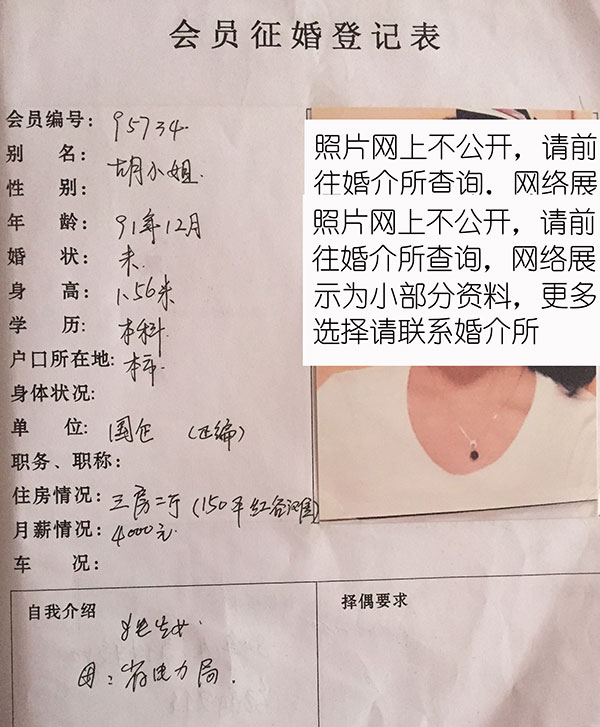 会员征婚登记表
会员编号: 95734
别 名: 胡小姐
性 别:
年 龄: 91年12月
婚 状: 未
身 高: 1.56米
学 历: 本科
户口所在地: 本市
身体状况:
单 位: 国企 (正编)
职务、职称:
住房情况: 三房二厅 (150平 红谷滩)
月薪情况: 4000元
车 况:
照片网上不公开，请前
往婚介所查询，网络展
照片网上不公开，请前
往婚介所查询，网络展
示为小部分资料，更多
选择请联系婚介所
自我介绍
独生女.
父: 省电力局.
择偶要求